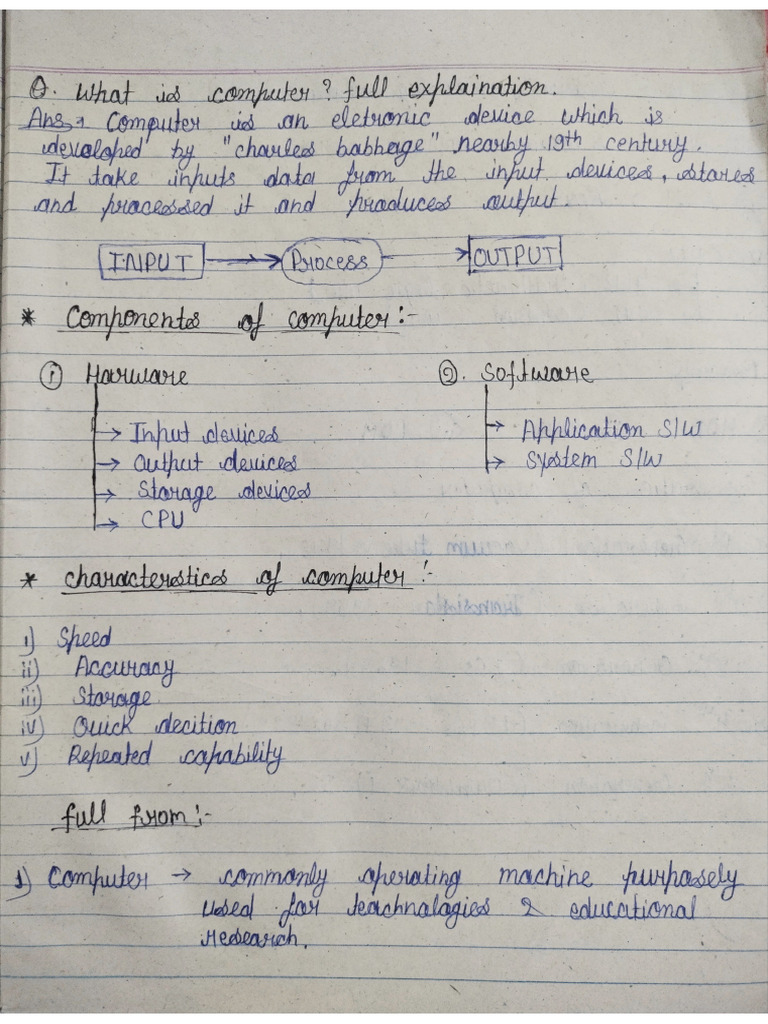 Q. What is computer? full explaination.
Ans→ Computer is an eletronic device which is
devaloped by "charles babbage" nearby 19th century.
It take inputs data from the input devices, stares
and processed it and produces output.
INPUT → Process → OUTPUT
* Components of computer:-
① Harware ②. Software
→ Input devices → Application S/W
→ Output devices → System S/W
→ Storage devices
→ CPU
* characterestics of computer:-
i) Speed
ii) Accuracy
iii) Storage
iv) Quick decition
v) Repeated capability
full from:-
1) Computer → commonly operating machine purposely
used for teachnalogies & educational
research.